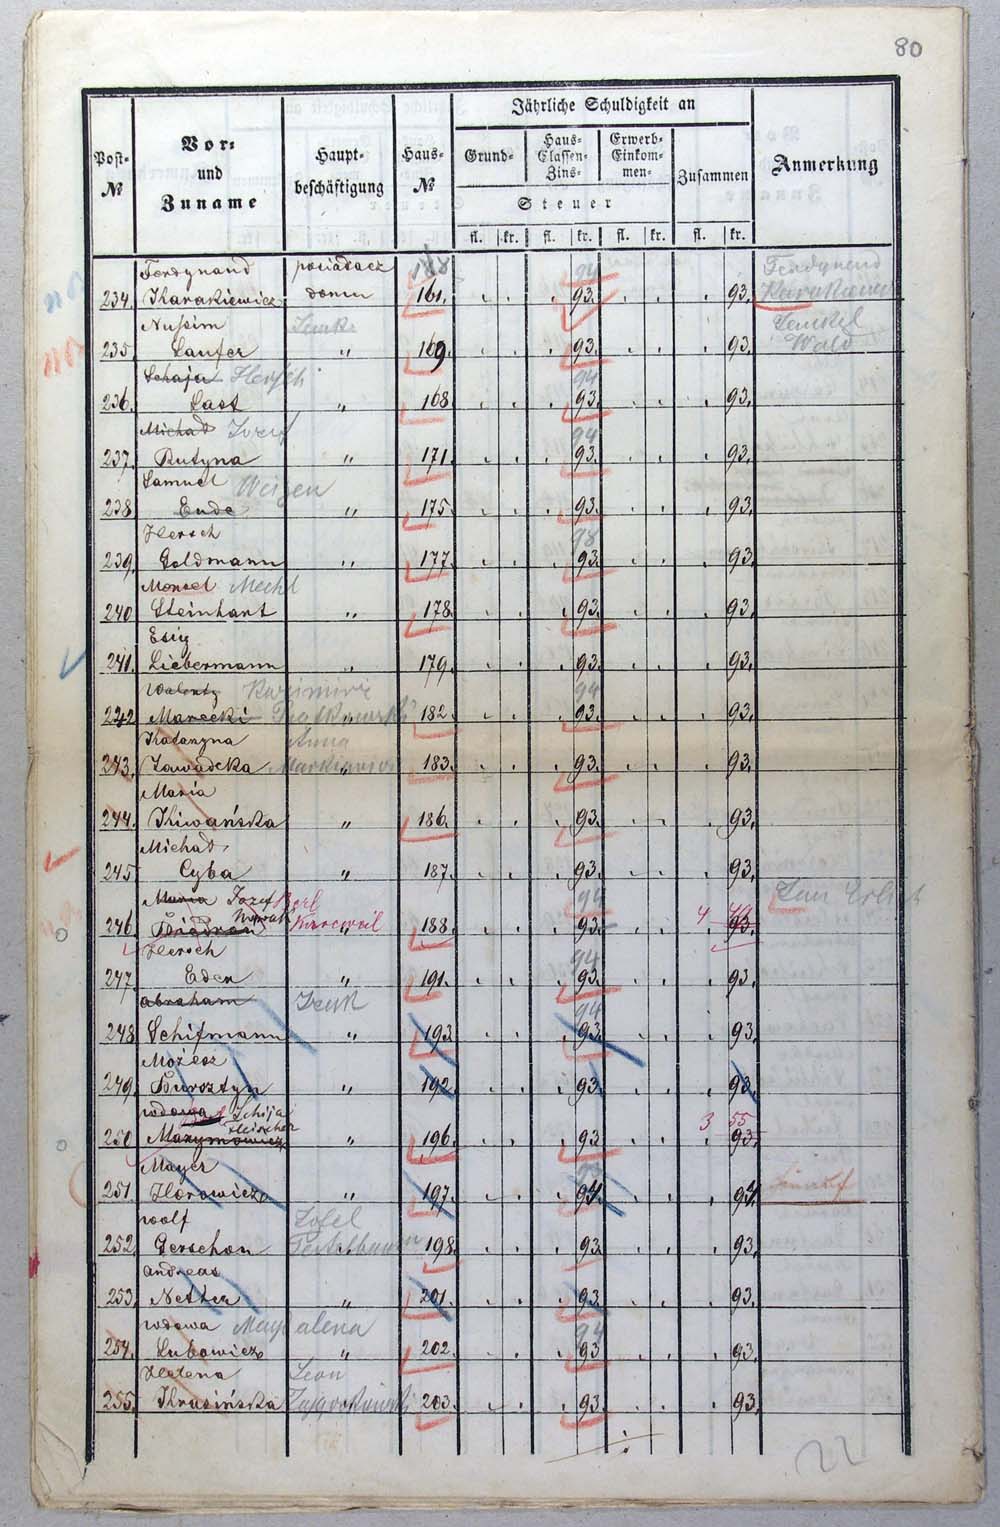 80
Jährliche Schuldigkeit an
Post-
№
Vor-
und
Zuname
Haupt-
beschäftigung
Haus-
№
Grund-
Haus-
Classen-
Zins-
Erwerb-
Einkom-
men-
Zusammen
Anmerkung
Steuer
fl. kr. fl. kr. fl. kr. fl. kr.
Ferdynand posiadacz 188 94 Ferdynand
234. Karakiewicz domu 161. 93. 93.
Nussim
235 Laufer " 169. 93. 93. Wald
Schaja Hersch 94
236. Last " 168 93. 93.
Michał Józef 94
237. Rutyna " 171. 93. 93.
Samuel Weizen
238 Ende " 175. 93. 93.
Hersch 98
239. Goldmann " 177. 93. 93.
Monsel Mechl
240 Steinhart " 178. 93. 93.
Esig
241. Liebermann " 179. 93. 93.
Walenty Kazimirz 94
242 Marecki " 182. 93. 93.
Katarzyna Anna
243. Zawadzka " 183. 93. 93.
Maria
244. Kiwańska " 186. 93. 93.
Michał
245 Cyba " 187. 93. 93.
Maria Józef Berl 94
Nowak
246. " 188. 93. 4 93.
Hersch 94
247. Eden " 191. 93. 93.
Abraham 94
248 Schifmann " 193. 93. 93.
Mojżesz
249. Bursztyn " 192. 93. 93.
wdowa Schija 3 55
250. Maxymowicz " 196. 93 93.
Mayer 93
251 Horowicz " 197. 94. 94.
Wolf
252. Gerschon 198. 93. 93.
Andreas
253. Netter " 201. 93. 93.
wdowa Magdalena 94
254. Lubowicz " 202. 93 93.
Helena Leon
255. Krasińska 203. 93. 93.
22